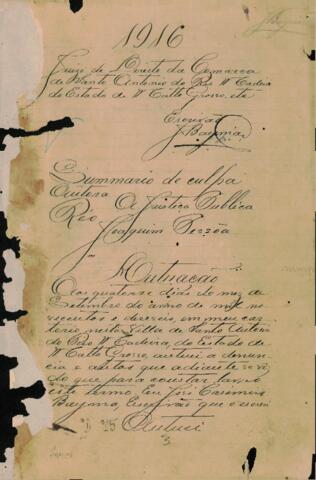 1916
Juizo de Direito da Comarca
de Santo Antonio do Rio Madeira
do Estado de Matto Grosso, etc
Escrivão
J. Bayma
Summario de culpa
Autora A Justiça Publica
Reo
Joaquim Pessôa
Autuação
Aos quatorze dias do mez de
Setembro do anno de mil no-
vecentos e deseseis, em meu car-
torio nesta Villa de Santo Antonio
do Rio Madeira, do Estado de
Matto Grosso, autuei a denun-
cia e
que para constar lavro
este termo. Eu José
Bayma, Escrivão que o escrevi
Autuei